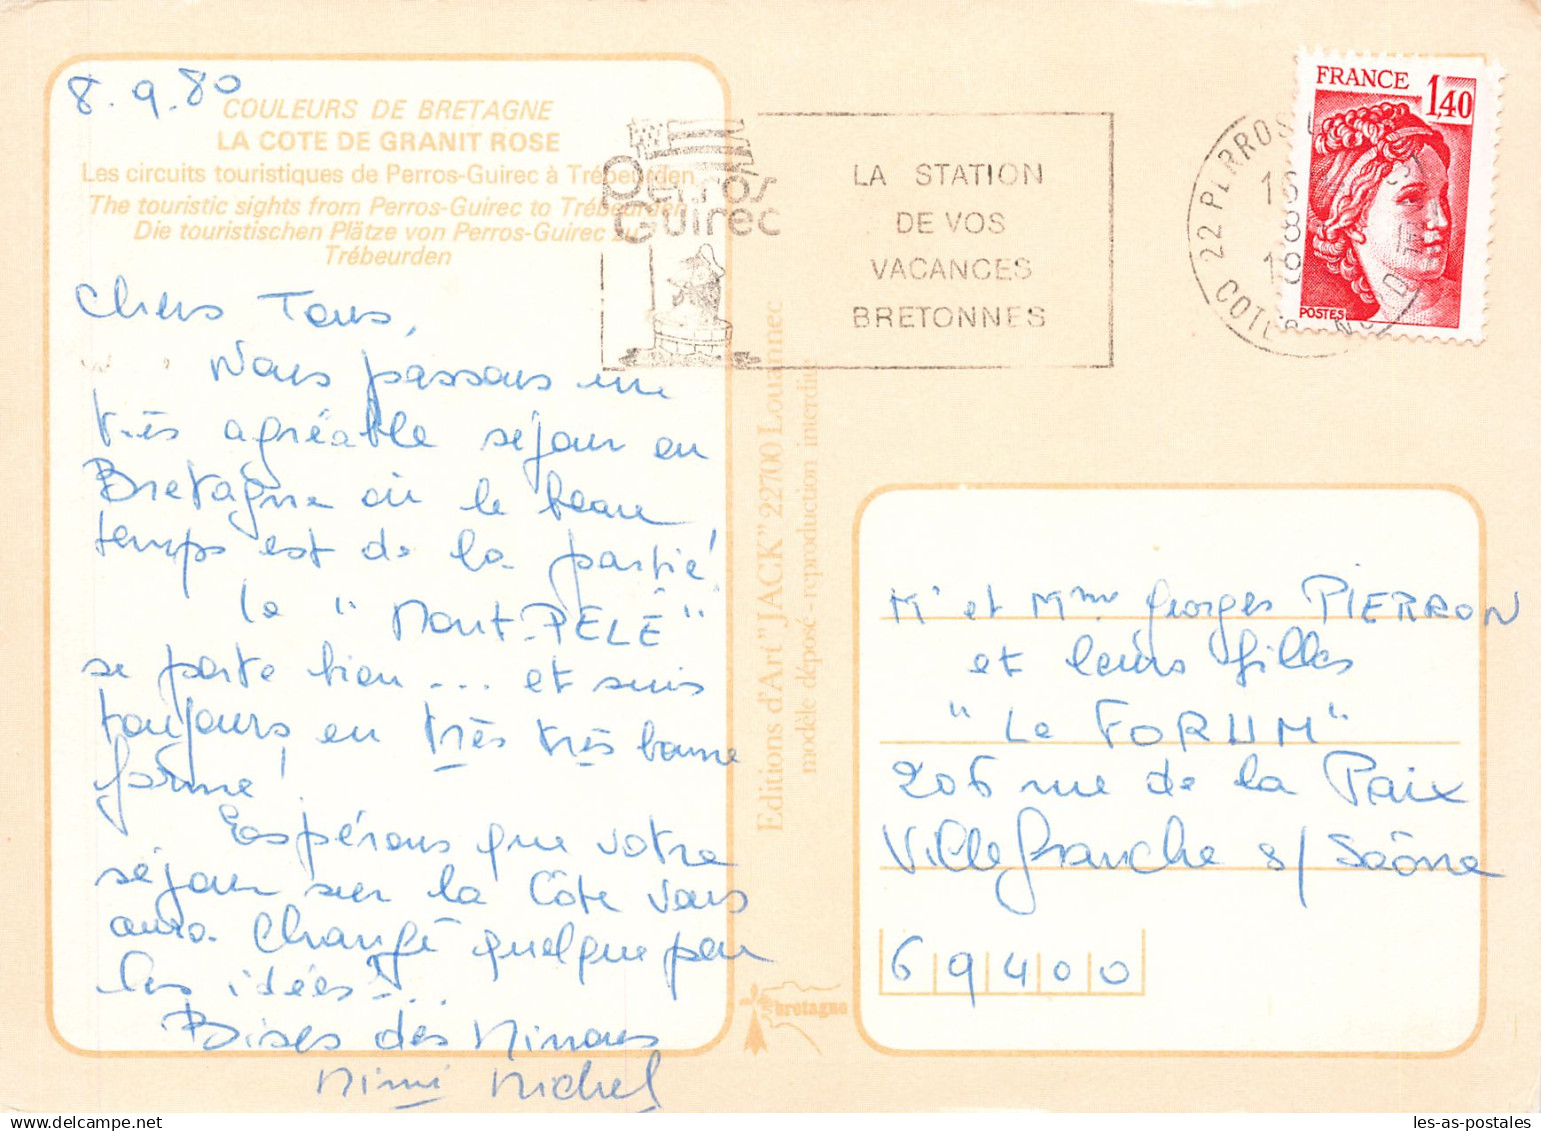 8.9.80
COULEURS DE BRETAGNE
LA COTE DE GRANIT ROSE
Les circuits touristiques de Perros-Guirec à Trébeurden
The touristic sights from Perros-Guirec to Trébeurden
Die touristischen Plätze von Perros-Guirec zu
Trébeurden
Chers Tous,
Nous passons un
très agréable séjour en
Bretagne où le beau
temps est de la partie!
Le "Mont-PELÉ"
se porte bien... et suis
toujours en très très bonne
forme!
Espérons que votre
séjour sur la Côte vous
aura changé quelque peu
les idées!...
Bises des Ninous
Mimi Michel
Perros
Guirec
LA STATION
DE VOS
VACANCES
BRETONNES
22 PERROS
16
8
COTE
FRANCE
1,40
POSTES
Editions d'Art "JACK" 22700 Louannec
modèle déposé - reproduction interdite
bretagne
Mr et Mme Georges PIERRON
et leurs filles
"Le FORUM"
206 rue de la Paix
Villefranche s/ Saône
69400
les-as-postales